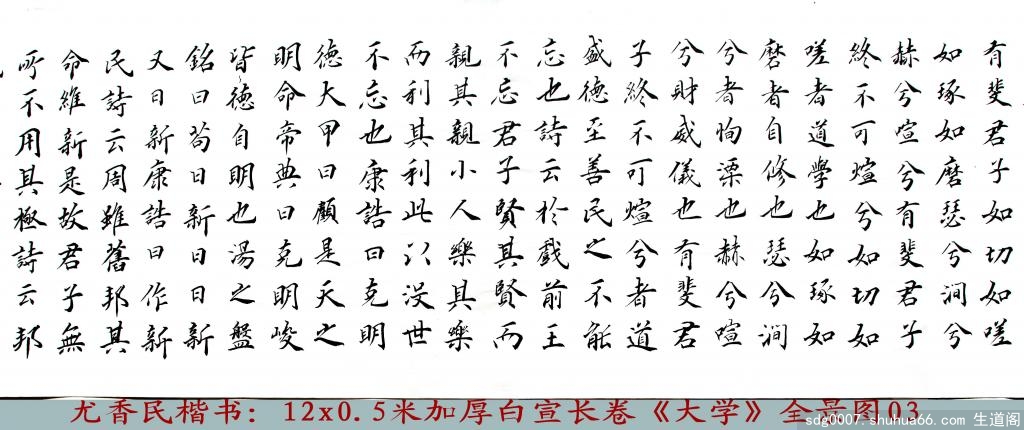 有斐君子如切如嗟
如琢如磨瑟兮澗兮
赫兮喧兮有斐君子
終不可煊兮如切如
嗟者道學也如琢如
磨者自修也瑟兮澗
兮者恂溧也赫兮喧
兮財威儀也有斐君
子終不可煊兮者道
盛德至善民之不能
忘也詩云於戲前王
不忘君子賢其賢而
親其親小人樂其樂
而利其利此以沒世
不忘也康誥曰克明
德大甲曰顧是天之
明命帝典曰克明峻
皆德自明也湯之盤
銘曰苟日新日日新
又日新康誥曰作新
民詩云周雖舊邦其
命維新是故君子無
所不用其極詩云邦
尤香民楷书：12x0.5米加厚白宣长卷《大学》全景图03
sdg0007.shuhua66.com 生道阁